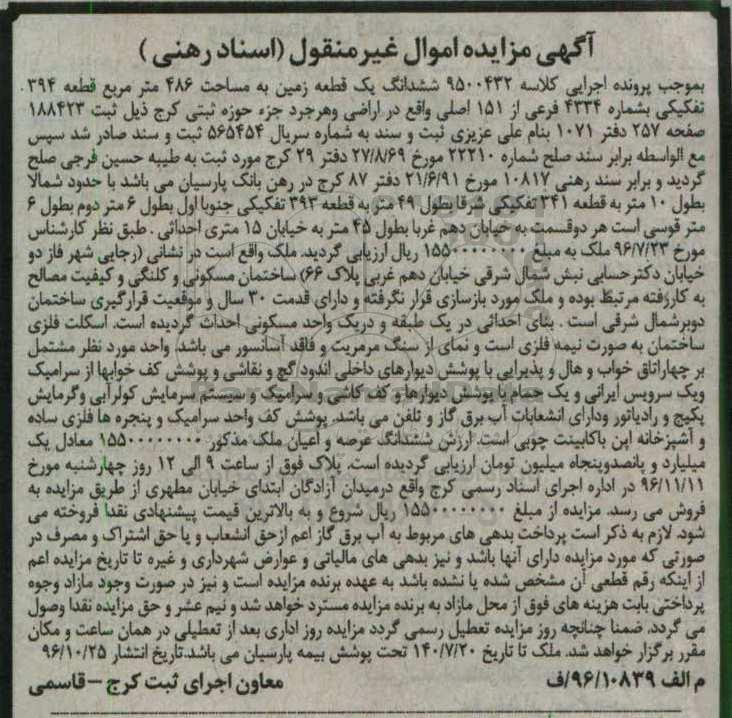 آگهی مزایده اموال غیرمنقول (اسناد رهنی)
بموجب پرونده اجرایی کلاسه ۹۵۰۰۴۳۲ ششدانگ یک قطعه زمین به مساحت ۴۸۶ متر مربع قطعه ۳۹۴
تفکیکی بشماره ۴۳۳۴ فرعی از ۱۵۱ اصلی واقع در اراضی وهرجرد جزء حوزه ثبتی کرج ذیل ثبت ۱۸۸۴۲۳
صفحه ۲۵۷ دفتر ۱۰۷۱ بنام علی عزیزی ثبت و سند به شماره سریال ۵۶۵۴۵۴ ثبت و سند صادر شد سپس
مع الواسطه برابر سند صلح شماره ۲۲۲۱۰ مورخ ۲۷/۸/۶۹ دفتر ۲۹ کرج مورد ثبت به طیبه حسین فرجی صلح
گردید و برابر سند رهنی ۱۰۸۱۷ مورخ ۲۱/۶/۹۱ دفتر ۸۷ کرج در رهن بانک پارسیان می باشد با حدود شمالا
بطول ۱۰ متر به قطعه ۳۴۱ تفکیکی شرقا بطول ۴۹ متر به قطعه ۳۹۳ تفکیکی جنوبا اول بطول ۶ متر دوم بطول ۶
متر قوسی است هر دوقسمت به خیابان دهم غربا بطول ۴۵ متر به خیابان ۱۵ متری احداثی . طبق نظر کارشناس
مورخ ۹۶/۷/۲۳ ملک به مبلغ ۱۵۵۰۰۰۰۰۰۰۰ ریال ارزیابی گردید. ملک واقع است در نشانی (رجایی شهر فاز دو
خیابان دکترحسابی نبش شمال شرقی خیابان دهم غربی پلاک ۶۶) ساختمان مسکونی و کلنگی و کیفیت مصالح
به کاررفته مرتبط بوده و ملک مورد بازسازی قرار نگرفته و دارای قدمت ۳۰ سال و موقعیت قرارگیری ساختمان
دوبرشمال شرقی است . بنای احداثی در یک طبقه و دریک واحد مسکونی احداث گردیده است. اسکلت فلزی
ساختمان به صورت نیمه فلزی است و نمای از سنگ مرمریت و فاقد آسانسور می باشد. واحد مورد نظر مشتمل
بر چهاراتاق خواب و هال و پذیرایی با پوشش دیوارهای داخلی اندود گچ و نقاشی و پوشش کف خوابها از سرامیک
ویک سرویس ایرانی و یک حمام با پوشش دیوارها و کف کاشی و سرامیک و سیستم سرمایش کولرآبی وگرمایش
پکیج و رادیاتور ودارای انشعابات آب برق گاز و تلفن می باشد. پوشش کف واحد سرامیک و پنجره ها فلزی ساده
و آشپزخانه اپن باکابینت چوبی است. ارزش ششدانگ عرصه و اعیان ملک مذکور ۱۵۵۰۰۰۰۰۰۰۰ معادل یک
میلیارد و پانصدوپنجاه میلیون تومان ارزیابی گردیده است. پلاک فوق از ساعت ۹ الی ۱۲ روز چهارشنبه مورخ
۹۶/۱۱/۱۱ در اداره اجرای اسناد رسمی کرج واقع درمیدان آزادگان ابتدای خیابان مطهری از طریق مزایده به
فروش می رسد. مزایده از مبلغ ۱۵۵۰۰۰۰۰۰۰۰ ریال شروع و به بالاترین قیمت پیشنهادی نقدا فروخته می
شود. لازم به ذکر است پرداخت بدهی های مربوط به آب برق گاز اعم ازحق انشعاب و یا حق اشتراک و مصرف در
صورتی که مورد مزایده دارای آنها باشد و نیز بدهی های مالیاتی و عوارض شهرداری و غیره تا تاریخ مزایده اعم
از اینکه رقم قطعی آن مشخص شده یا نشده باشد به عهده برنده مزایده است و نیز در صورت وجود مازاد وجوه
پرداختی بابت هزینه های فوق از محل مازاد به برنده مزایده مسترد خواهد شد و نیم عشر و حق مزایده نقدا وصول
می گردد. ضمنا چنانچه روز مزایده تعطیل رسمی گردد مزایده روز اداری بعد از تعطیلی در همان ساعت و مکان
مقرر برگزار خواهد شد. ملک تا تاریخ ۱۴۰/۷/۲۰ تحت پوشش بیمه پارسیان می باشد.تاریخ انتشار ۹۶/۱۰/۲۵
م الف ۹۶/۱۰۸۳۹/ف
معاون اجرای ثبت کرج - قاسمی